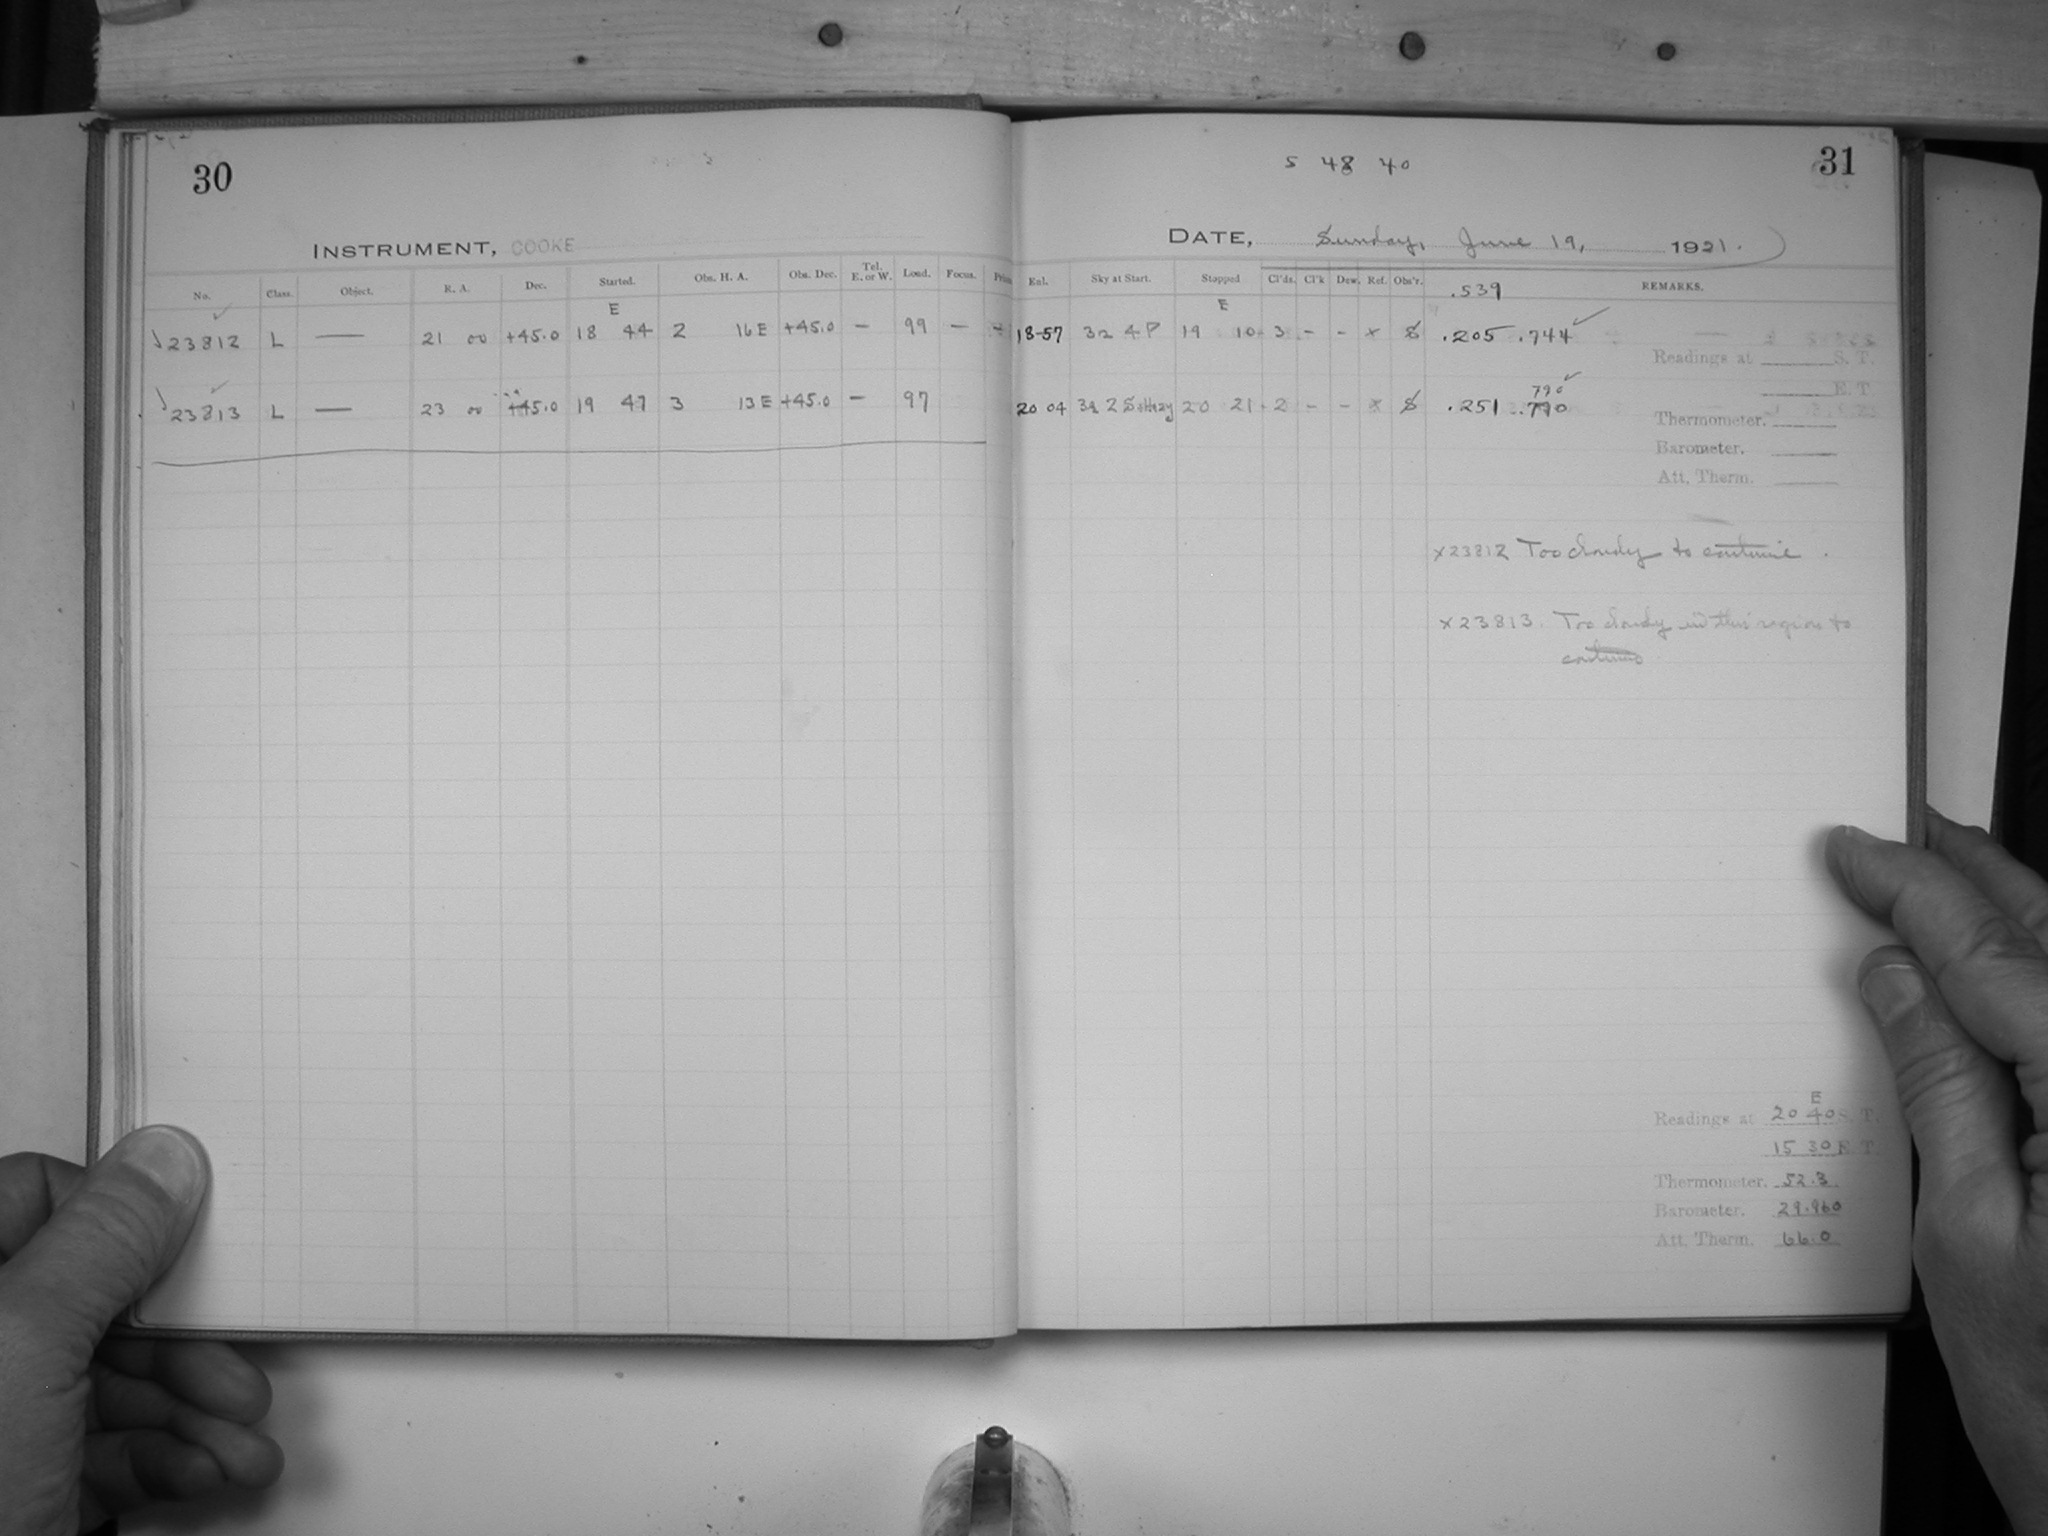 30
INSTRUMENT, COOKE
No. Class. Object. R. A. Dec. Started. Obs. H. A. Obs. Dec. Tel. E. or W. Load. Focus.
E
23812 L — 21 00 +45.0 18 44 2 16 E +45.0 — 99 —
23813 L — 23 00 +45.0 19 47 3 13 E +45.0 — 97
5 48 40
31
DATE, Sunday, June 19, 1921.
Enl. Sky at Start. Stopped Cl'ds. Cl'k Dew. Ref. Obs'r. .539 REMARKS.
E
18-57 32 4 P 19 10 3 - - x S .205 .744
Readings at S. T.
790 E. T
20 04 32 2 S. Hazy 20 21 2 - - x S .251 .790
Thermometer.
Barometer.
Att. Therm.
x 23812 Too cloudy to continue.
x 23813. Too cloudy in this region to
continue
E
Readings at 20 40 S. T.
15 30 E. T
Thermometer. 52.3
Barometer. 29.960
Att. Therm. 66.0